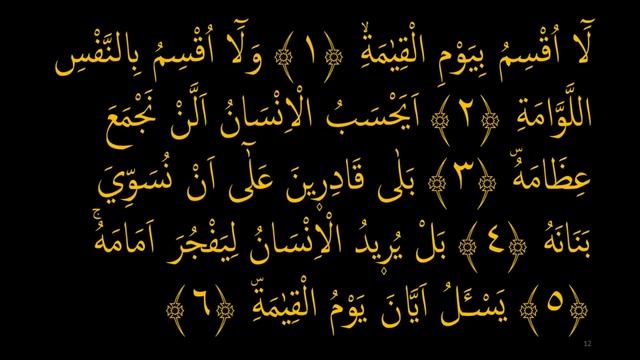 لَٓا اُقْسِمُ بِيَوْمِ الْقِيٰمَةِۙ ﴿١﴾ وَلَٓا اُقْسِمُ بِالنَّفْسِ
اللَّوَّامَةِ ﴿٢﴾ اَيَحْسَبُ الْاِنْسَانُ اَلَّنْ نَجْمَعَ
عِظَامَهُۜ ﴿٣﴾ بَلٰى قَادِرٖينَ عَلٰٓى اَنْ نُسَوِّيَ
بَنَانَهُ ﴿٤﴾ بَلْ يُرٖيدُ الْاِنْسَانُ لِيَفْجُرَ اَمَامَهُۚ
﴿٥﴾ يَسْـَٔلُ اَيَّانَ يَوْمُ الْقِيٰمَةِۜ ﴿٦﴾
12